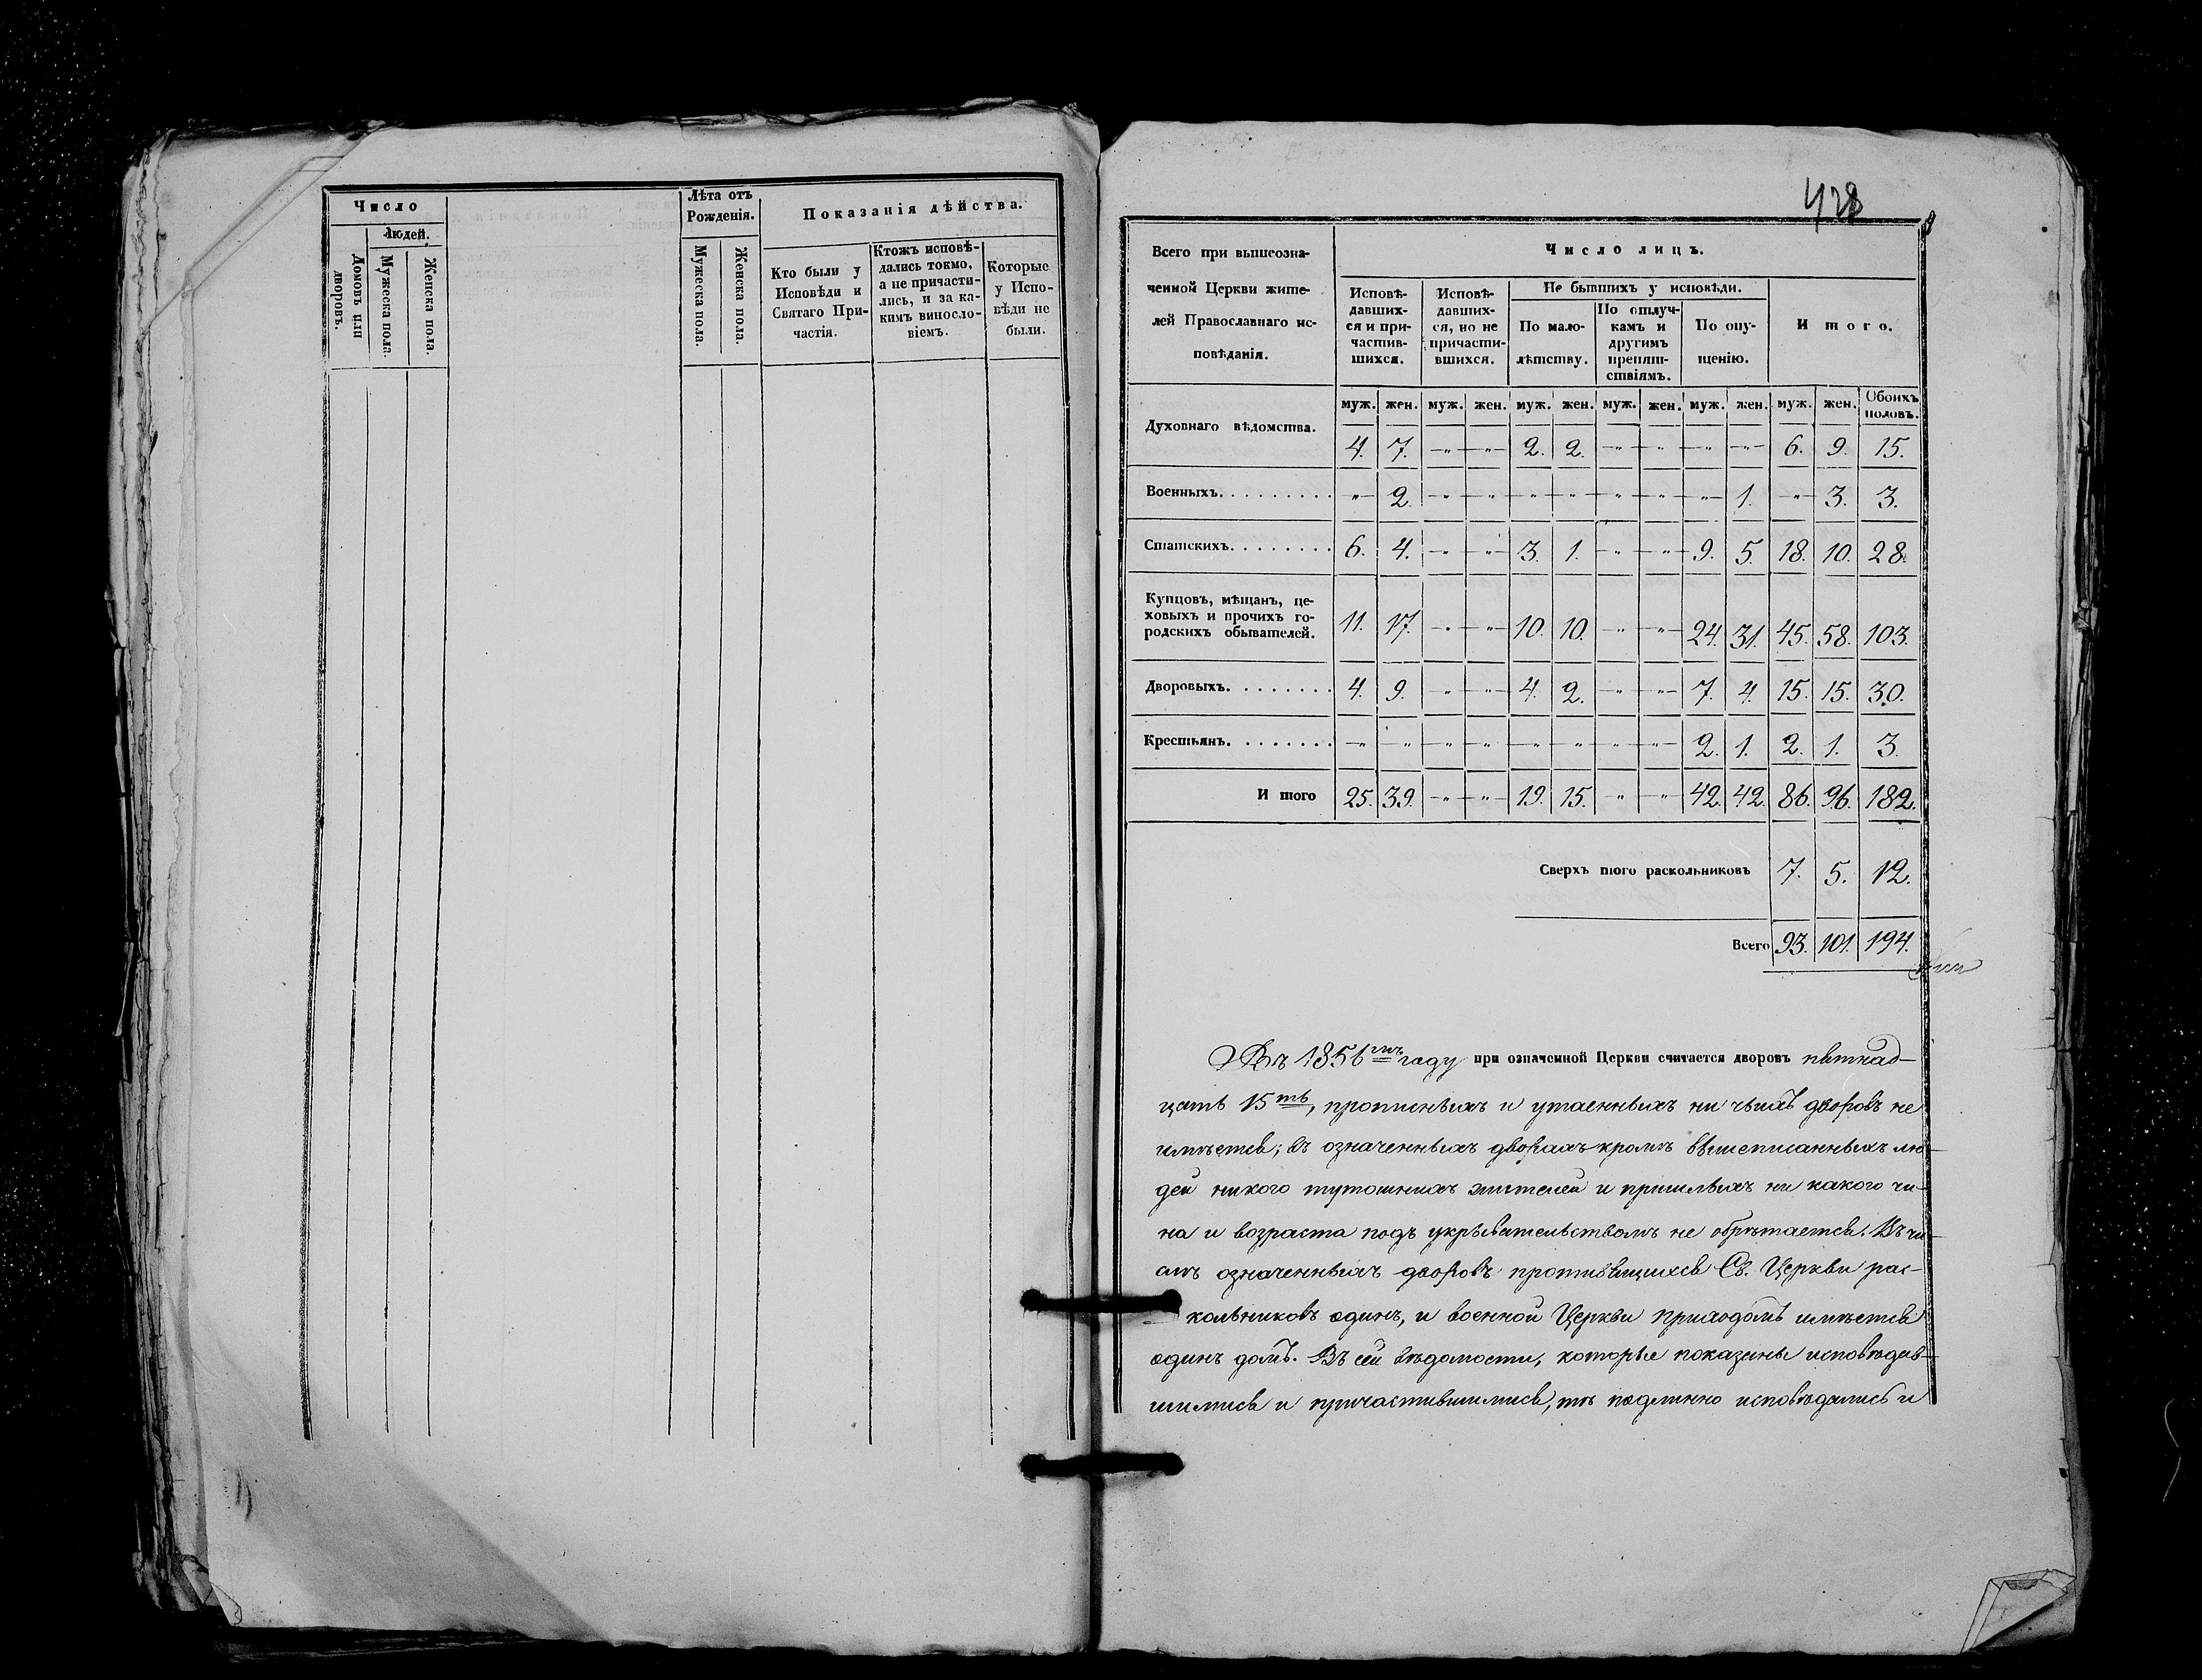 Число
Людей.
Домовъ или дворовъ.
Мужеска пола.
Женска пола.
Лѣта отъ
Рожденія.
Мужеска пола.
Женска пола.
Показанія дѣйства.
Кто были у
Исповѣди и
Святаго При-
частія.
Ктожъ исповѣ-
дались токмо,
а не причасти-
лись, и за ка-
кимъ винос­ло-
віемъ.
Которые
у Испо-
вѣди не
были.
428
Всего при вышеозна-
ченной Церкви жите-
лей Православнаго ис-
повѣданія.
Число лицъ.
Исповѣ-
давших-
ся и при-
частив-
шихся.
Исповѣ-
давших-
ся, но не
причасти-
вшихся.
Не бывшихъ у исповѣди.
По мало-
лѣтству.
По отлуч-
камъ и
другимъ
препят-
ствіямъ.
По опу-
щенію.
И того.
муж. жен. муж. жен. муж. жен. муж. жен. муж. жен. муж. жен. Обоихъ половъ.
Духовнаго вѣдомства. 4. 7. " " 2. 2. " " " " 6. 9. 15.
Военныхъ. " 2. " " " " " " " 1. " 3. 3.
Статскихъ. 6. 4. " " 3. 1. " " 9. 5. 18. 10. 28.
Купцовъ, мѣщанъ, це-
ховыхъ и прочихъ го-
родскихъ обывателей. 11. 17. " " 10. 10. " " 24. 31. 45. 58. 103.
Дворовыхъ. 4. 9. " " 4. 2. " " 7. 4. 15. 15. 30.
Крестьянъ. " " " " " " " " 2. 1. 2. 1. 3.
И того 25. 39. " " 19. 15. " " 42. 42. 86. 96. 182.
Сверхъ того раскольниковъ 7. 5. 12.
Всего 93. 101. 194.
Въ 1856мъ году при означенной Церкви считается дворовъ пятнад-
цать 15ть, прописныхъ и утаенныхъ ни чьихъ дворовъ не
имѣется; въ означенныхъ дворахъ кромѣ вышеписанныхъ лю-
дей никого тутошнихъ жителей и пришлыхъ ни какого чи-
на и возраста подъ укрывательствомъ не обрѣтается. Въ чи-
слѣ означенныхъ дворовъ противящихся Св. Церкви рас-
кольниковъ одинъ, и военной Церкви приходомъ имѣется
одинъ домъ. Въ сей вѣдомости, которые показаны исповѣдав-
шимися и причастившимися, тѣ подлинно исповѣдались и